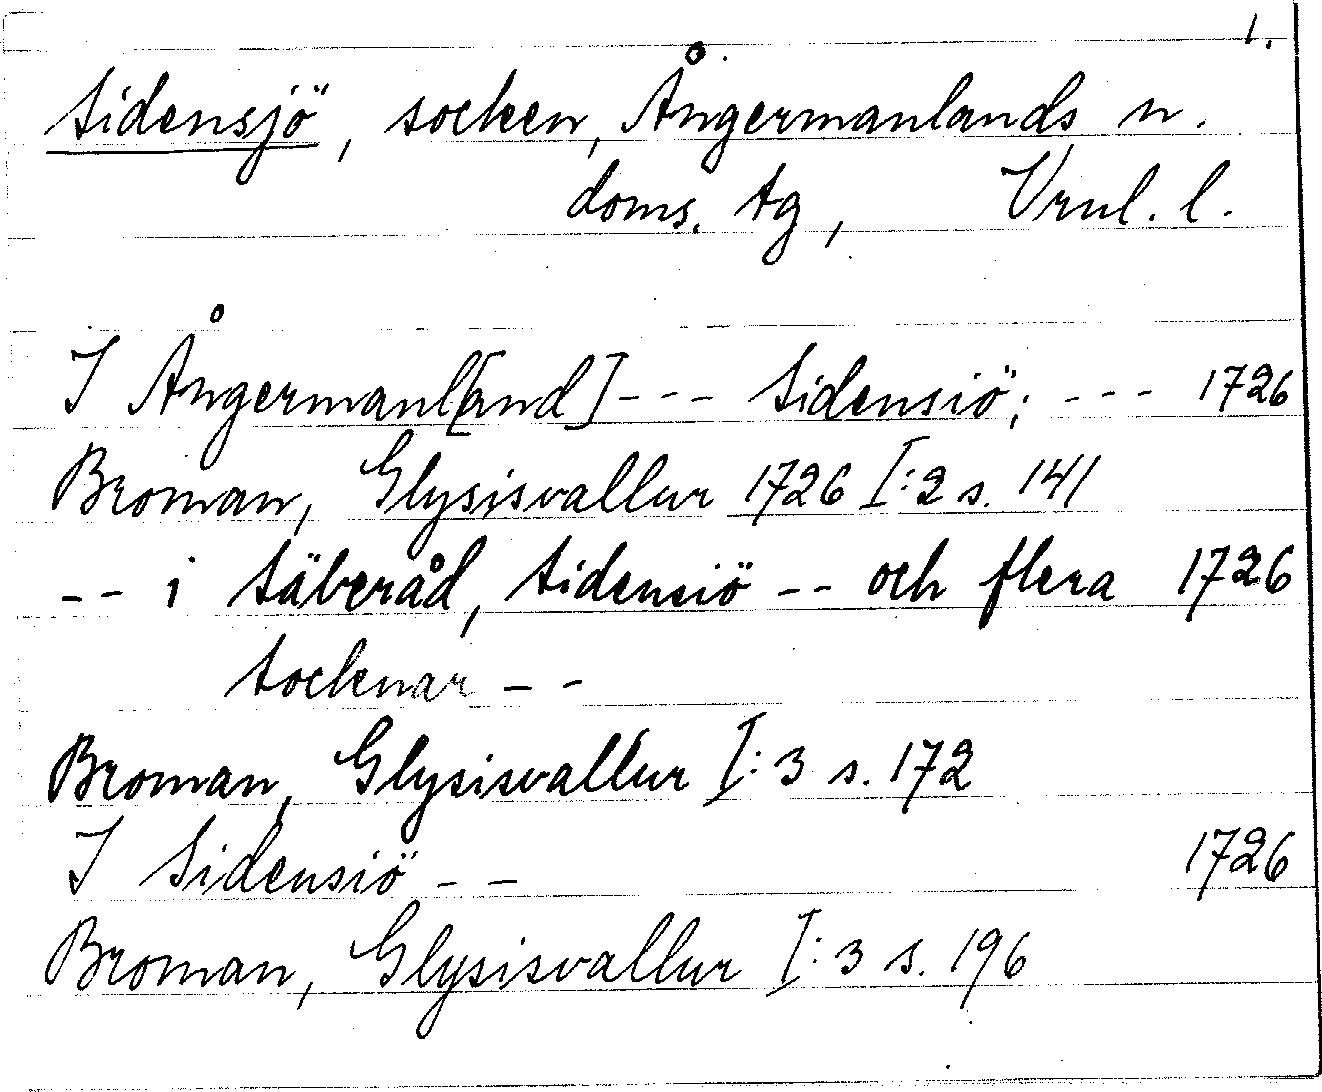 1.
Sidensjö, socken, Ångermanlands n.
doms. tg, Vrnl. l.
I Ångermanl[and] - - - Sidensiö; - - - 1726
Broman, Glysisvallur 1726 I:2 s. 141
- - i Säbråd, Sidensiö - - och flera 1726
Socknar - -
Broman, Glysisvallur I:3 s. 172
I Sidensiö - - 1726
Broman, Glysisvallur I:3 s. 196